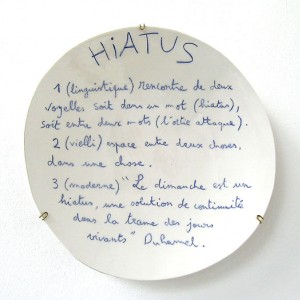 HiATUS
1 (linguistique) rencontre de deux
voyelles soit dans un mot (hiatus),
soit entre deux mots (l'ortie attaque).
2 (vielli) espace entre deux choses,
dans une chose.
3 (moderne) " Le dimanche est un
hiatus, une solution de continuité
dans la trame des jours
vivants" Duhamel.